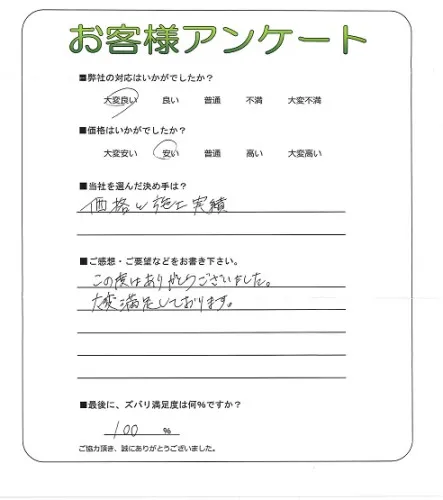 お客様アンケート
■弊社の対応はいかがでしたか？
大変良い 良い 普通 不満 大変不満
■価格はいかがでしたか？
大変安い 安い 普通 高い 大変高い
■当社を選んだ決め手は？
価格と施工実績
■ご感想・ご要望などをお書き下さい。
この度はありがとうございました。
大変満足しております。
■最後に、ズバリ満足度は何％ですか？
100 ％
ご協力頂き、誠にありがとうございました。